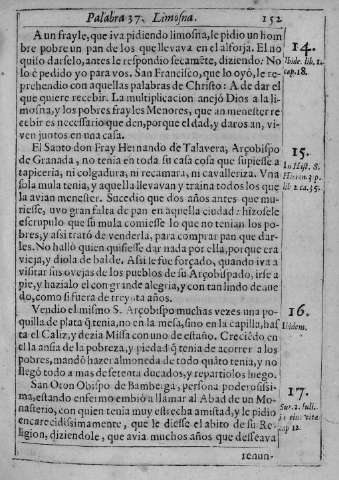 Palabra 37. Limosna. 152
A un frayle, que iva pidiendo limosna, le pidio un hom
bre pobre un pan de los que llevava en el alforja. El no
quiso darselo, antes le respondio secamēte, diziendo: No
lo è pedido yo para vos. San Francisco, que lo oyó, le re-
prehendio con aquellas palabras de Christo: A de dar el
que quiere recebir. La multiplicacion anejó Dios a la li-
mosna, y los pobres frayles Menores, que an menester re
cebir es necessario que den, porque el dad, y daros an, vi-
ven juntos en una casa.
14.
Ibide. lib. 1.
cap. 18.
El Santo don Fray Hernando de Talavera, Arçobispo
de Granada, no tenia en toda su casa cosa que supiesse a
tapiceria, ni colgadura, ni recamara, ni cavalleriza. Vna
sola mula tenia, y aquella llevavan y traìna todos los que
la avian menester. Sucedio que dos años antes que mu-
riesse, uvo gran falta de pan en aquella ciudad: hizosele
escrupulo que su mula comiesse lo que no tenian los po-
bres, y assi trató de venderla, para comprar pan que dar-
les. No halló quien quisiesse dar nada por ella, porque era
vieja, y diola de balde. Assi le fue forçado, quando iva a
visitar sus ovejas de los pueblos de su Arçobispado, irse a
pie, y hazialo el con grande alegria, y con tan lindo de nue
do, como si fuera de treynta años.
15.
Hist. S.
Hieron. 3. p.
lib. 2. ca. 35.
Vendio el mismo S. Arçobispo muchas vezes una po-
quilla de plata q̃ tenia, no en la mesa, sino en la capilla, has
ta el Caliz, y dezia Missa con uno de estaño. Creciēdo en
el la ansia de la pobreza, y piedad q̃ tenia de acorrer a los
pobres, mandó hazer almoneda de todo quāto tenia, y no
llegó todo a mas de setenta ducados, y repartiolos luego.
16.
Ibidem.
San Oton Obispo de Bamberga, persona poderosissi-
ma, estando enfermo embió a llamar al Abad de un Mo-
nasterio, con quien tenia muy estrecha amistad, y le pidio
encarecidissimamente, que le diesse el abito de su Re-
ligion, diziendole, que avia muchos años que desseava
17.
Sur. 2. Iulii.
cap 12.
renun-